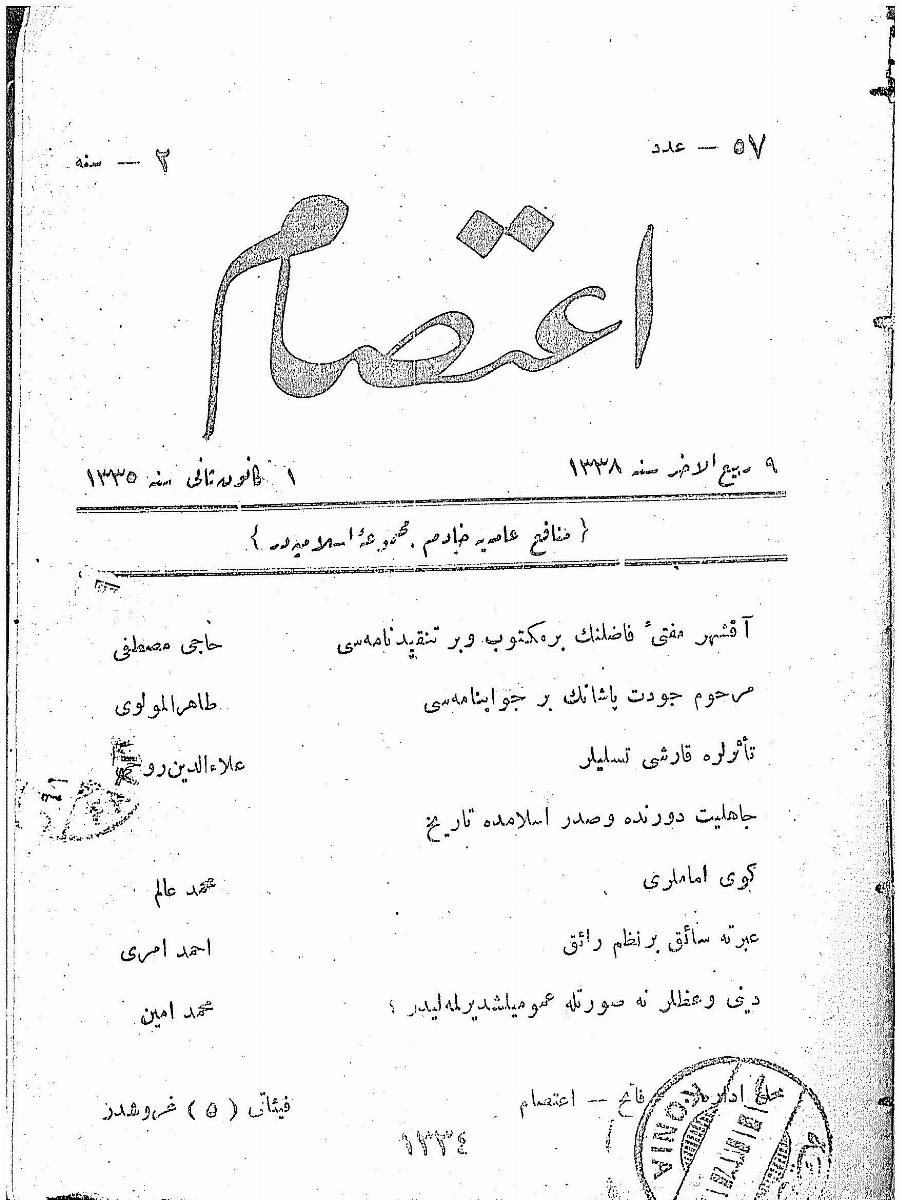 ٥٧ — عدد
٢ — سنه
اعتصام
٩ ربيع الاخر سنه ١٣٣٨
١ كانون ثانی سنه ١٣٣٥
{ منافع عامه‌یه خادم مجموعهٔ اسلامیه‌در }
آقشهر مفتیٔ فاضلنك بر مكتوب وبر تنقیدنامه‌سی حاجی مصطفی
مرحوم جودت پاشانك بر جوابنامه‌سی طاهر المولوی
تأثرلره قارشی تسلیلر علاءالدین
جاهلیت دورنده وصدر اسلامده تاریخ
كوی اماملری محمد عالم
عبرته سائق بر نظم رائق احمد امری
دینی وعظلر نه صورتله عمومیلشدیرلمه‌لیدر ؟ محمد امین
محل اداره فاتح — اعتصام
فیئاتی ( ٥ ) غروشدر
١٣٣٤
KONIA